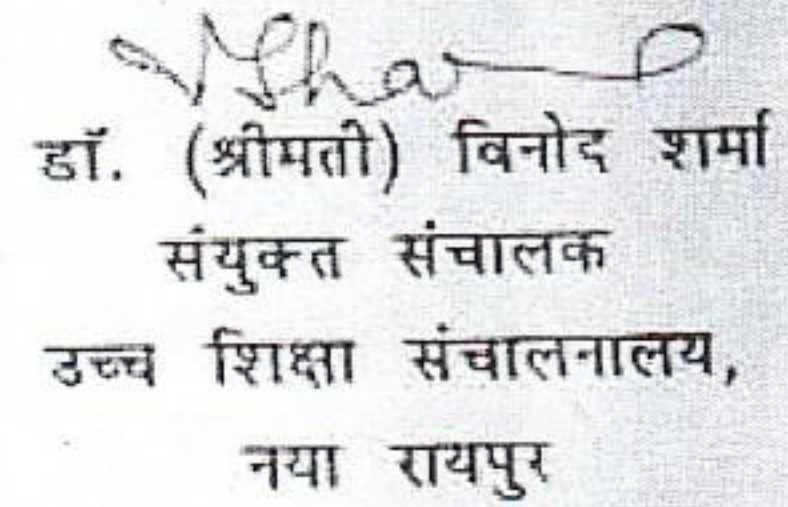 डॉ. (श्रीमती) विनोद शर्मा
संयुक्त संचालक
उच्च शिक्षा संचालनालय,
नया रायपुर